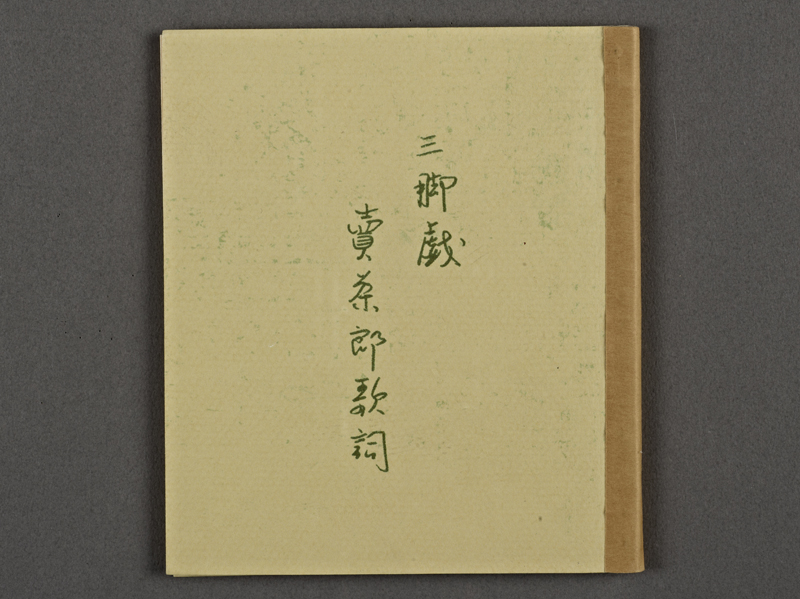 三脚戲
賣茶郎歌詞